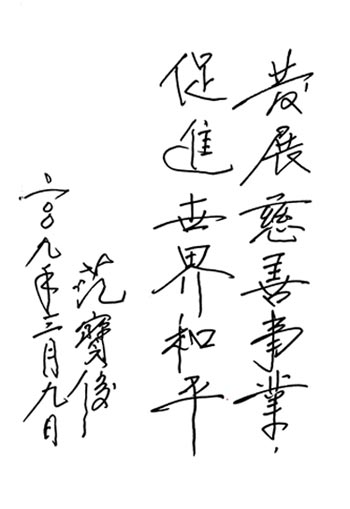 發展慈善事業，
促進世界和平
范寶俊
二〇〇九年三月九日